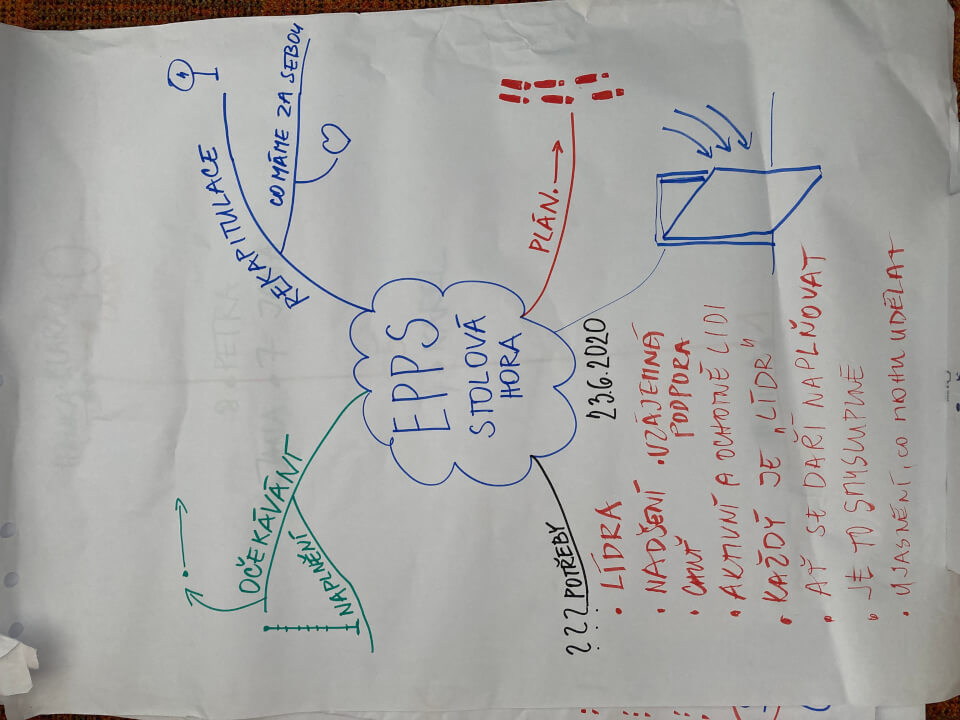 EPPS
STOLOVÁ
HORA
23.6.2020
OČEKÁVÁNÍ
NAPLNĚNÍ
REKAPITULACE
CO MÁME ZA SEBOU
PLÁN.
??? POTŘEBY
• LÍDRA
• NADŠENÍ
• VZÁJEMNÁ
PODPORA
• CHUŤ
• AKTIVNÍ A OCHOTNÉ LIDI
• KAŽDÝ JE „LÍDR"
• AŤ SE DAŘÍ NAPLŇOVAT
• JE TO SMYSLUPLNÉ
• UJASNĚNÍ, CO MOHU UDĚLAT